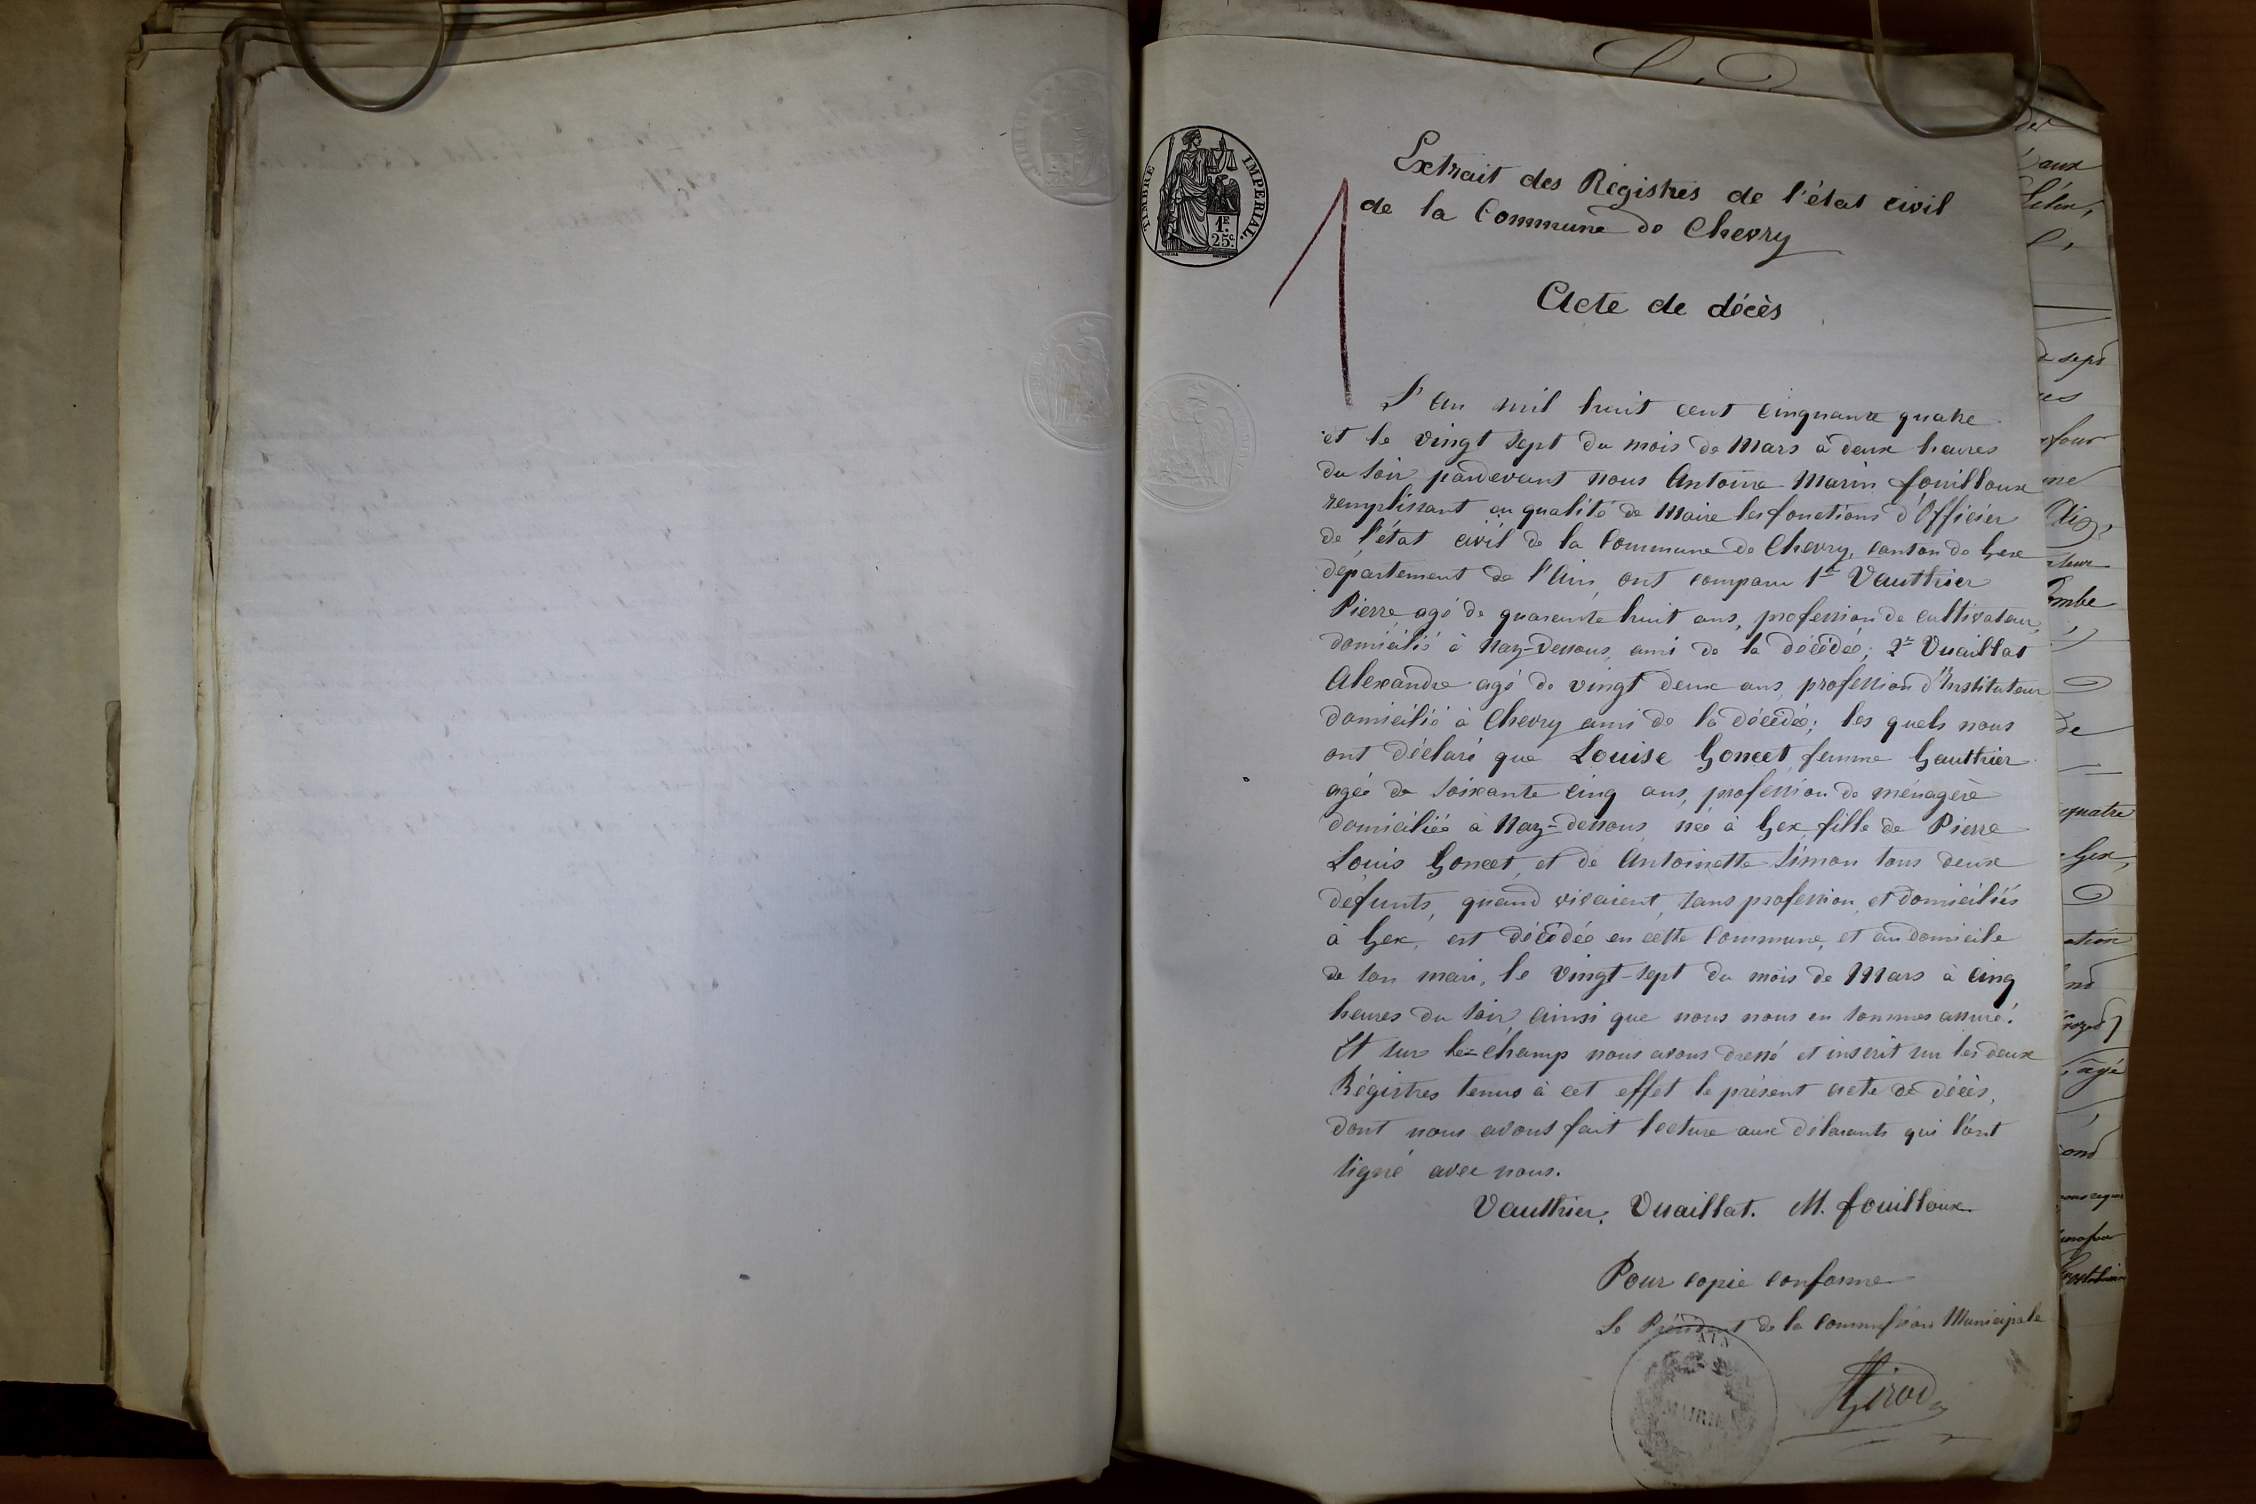 TIMBRE IMPERIAL.
1F.
25c.
Extrait des Régistres de l'état civil
de la Commune de Chevry
Acte de décès
L'an mil huit cent cinquante quatre
et le vingt sept du mois de Mars à deux heures
du soir pardevant nous Antoine Marin fouilloux
remplissant en qualité de Maire les fonctions d'Officier
de l'état civil de la Commune de Chevry, canton de Gex
département de l'Ain, ont comparu 1er Vauthier
Pierre agé de quarante huit ans, profession de cultivateur,
domicilié à Naz-Dessous, ami de la décédée; 2e Vuaillat
Alexandre agé de vingt deux ans, profession d'Instituteur
domicilié à Chevry ami de la décédée; les quels nous
ont déclaré que Louise Goncet femme Gauthier
agée de soixante cinq ans, profession de ménagère
domiciliée à Naz-dessous, née à Gex, fille de Pierre
Louis Goncet, et de Antoinette Simon tous deux
défunts, quand vivaient, sans profession, et domiciliés
à Gex, est décédée en cette Commune, et au domicile
de son mari, le vingt-sept du mois de Mars à cinq
heures du soir, ainsi que nous nous en sommes assuré.
Et sur le-champ nous avons dressé et inscrit sur les deux
Régistres tenus à cet effet le présent acte de décès,
dont nous avons fait lecture aux déclarants qui l'ont
signé avec nous.
Vauthier. Vuaillat. M. fouilloux.
Pour copie conforme
Le Président de la Commission Municipale
AIN
MAIRIE
Girod